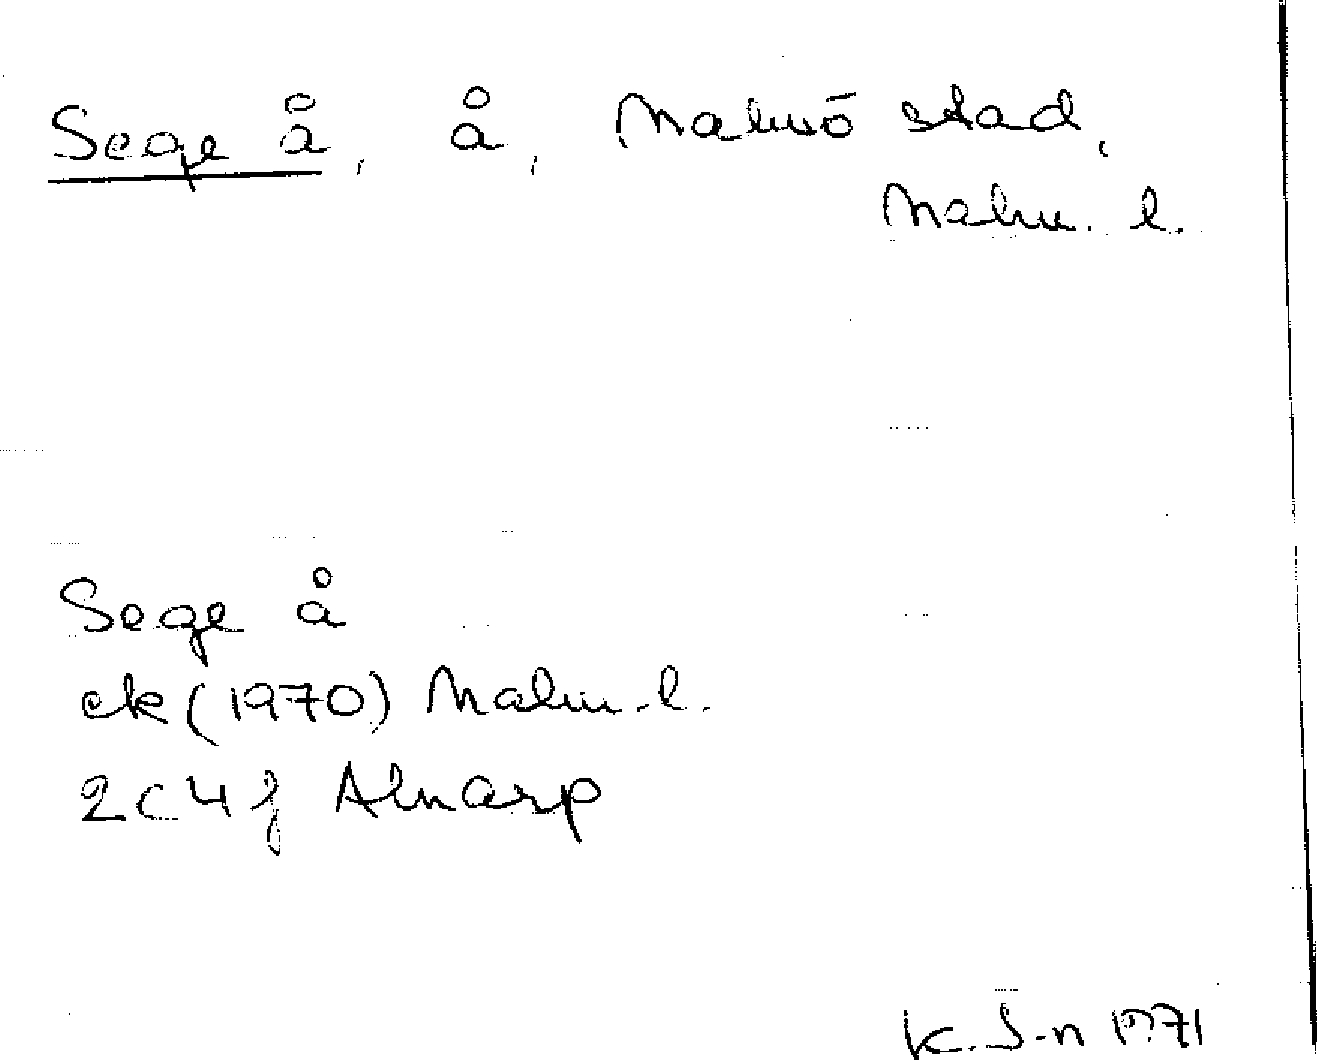 Sege å, å, Malmö stad,
Malm. l.
Sege å
ek (1970) Malm. l.
2C4j Alnarp
K. S-n 1971